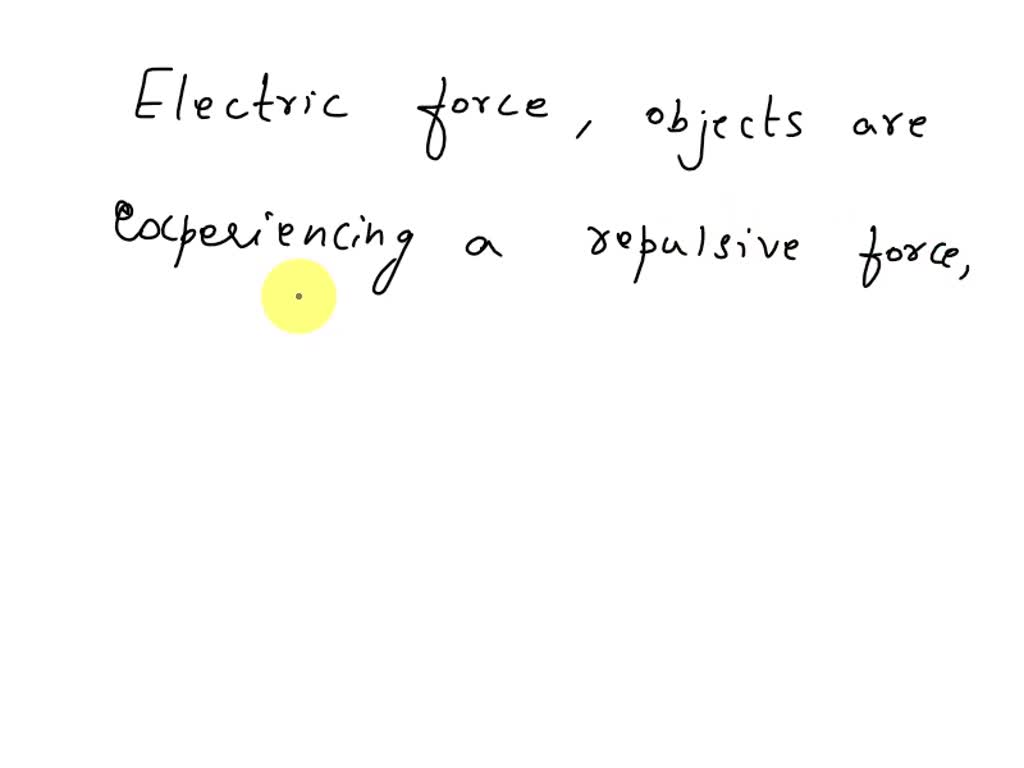 Electric force, objects are
experiencing a repulsive force,